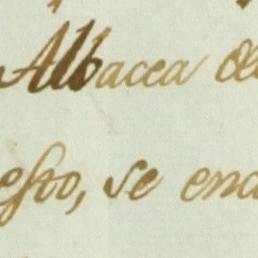 Albacea de
esto, se enc